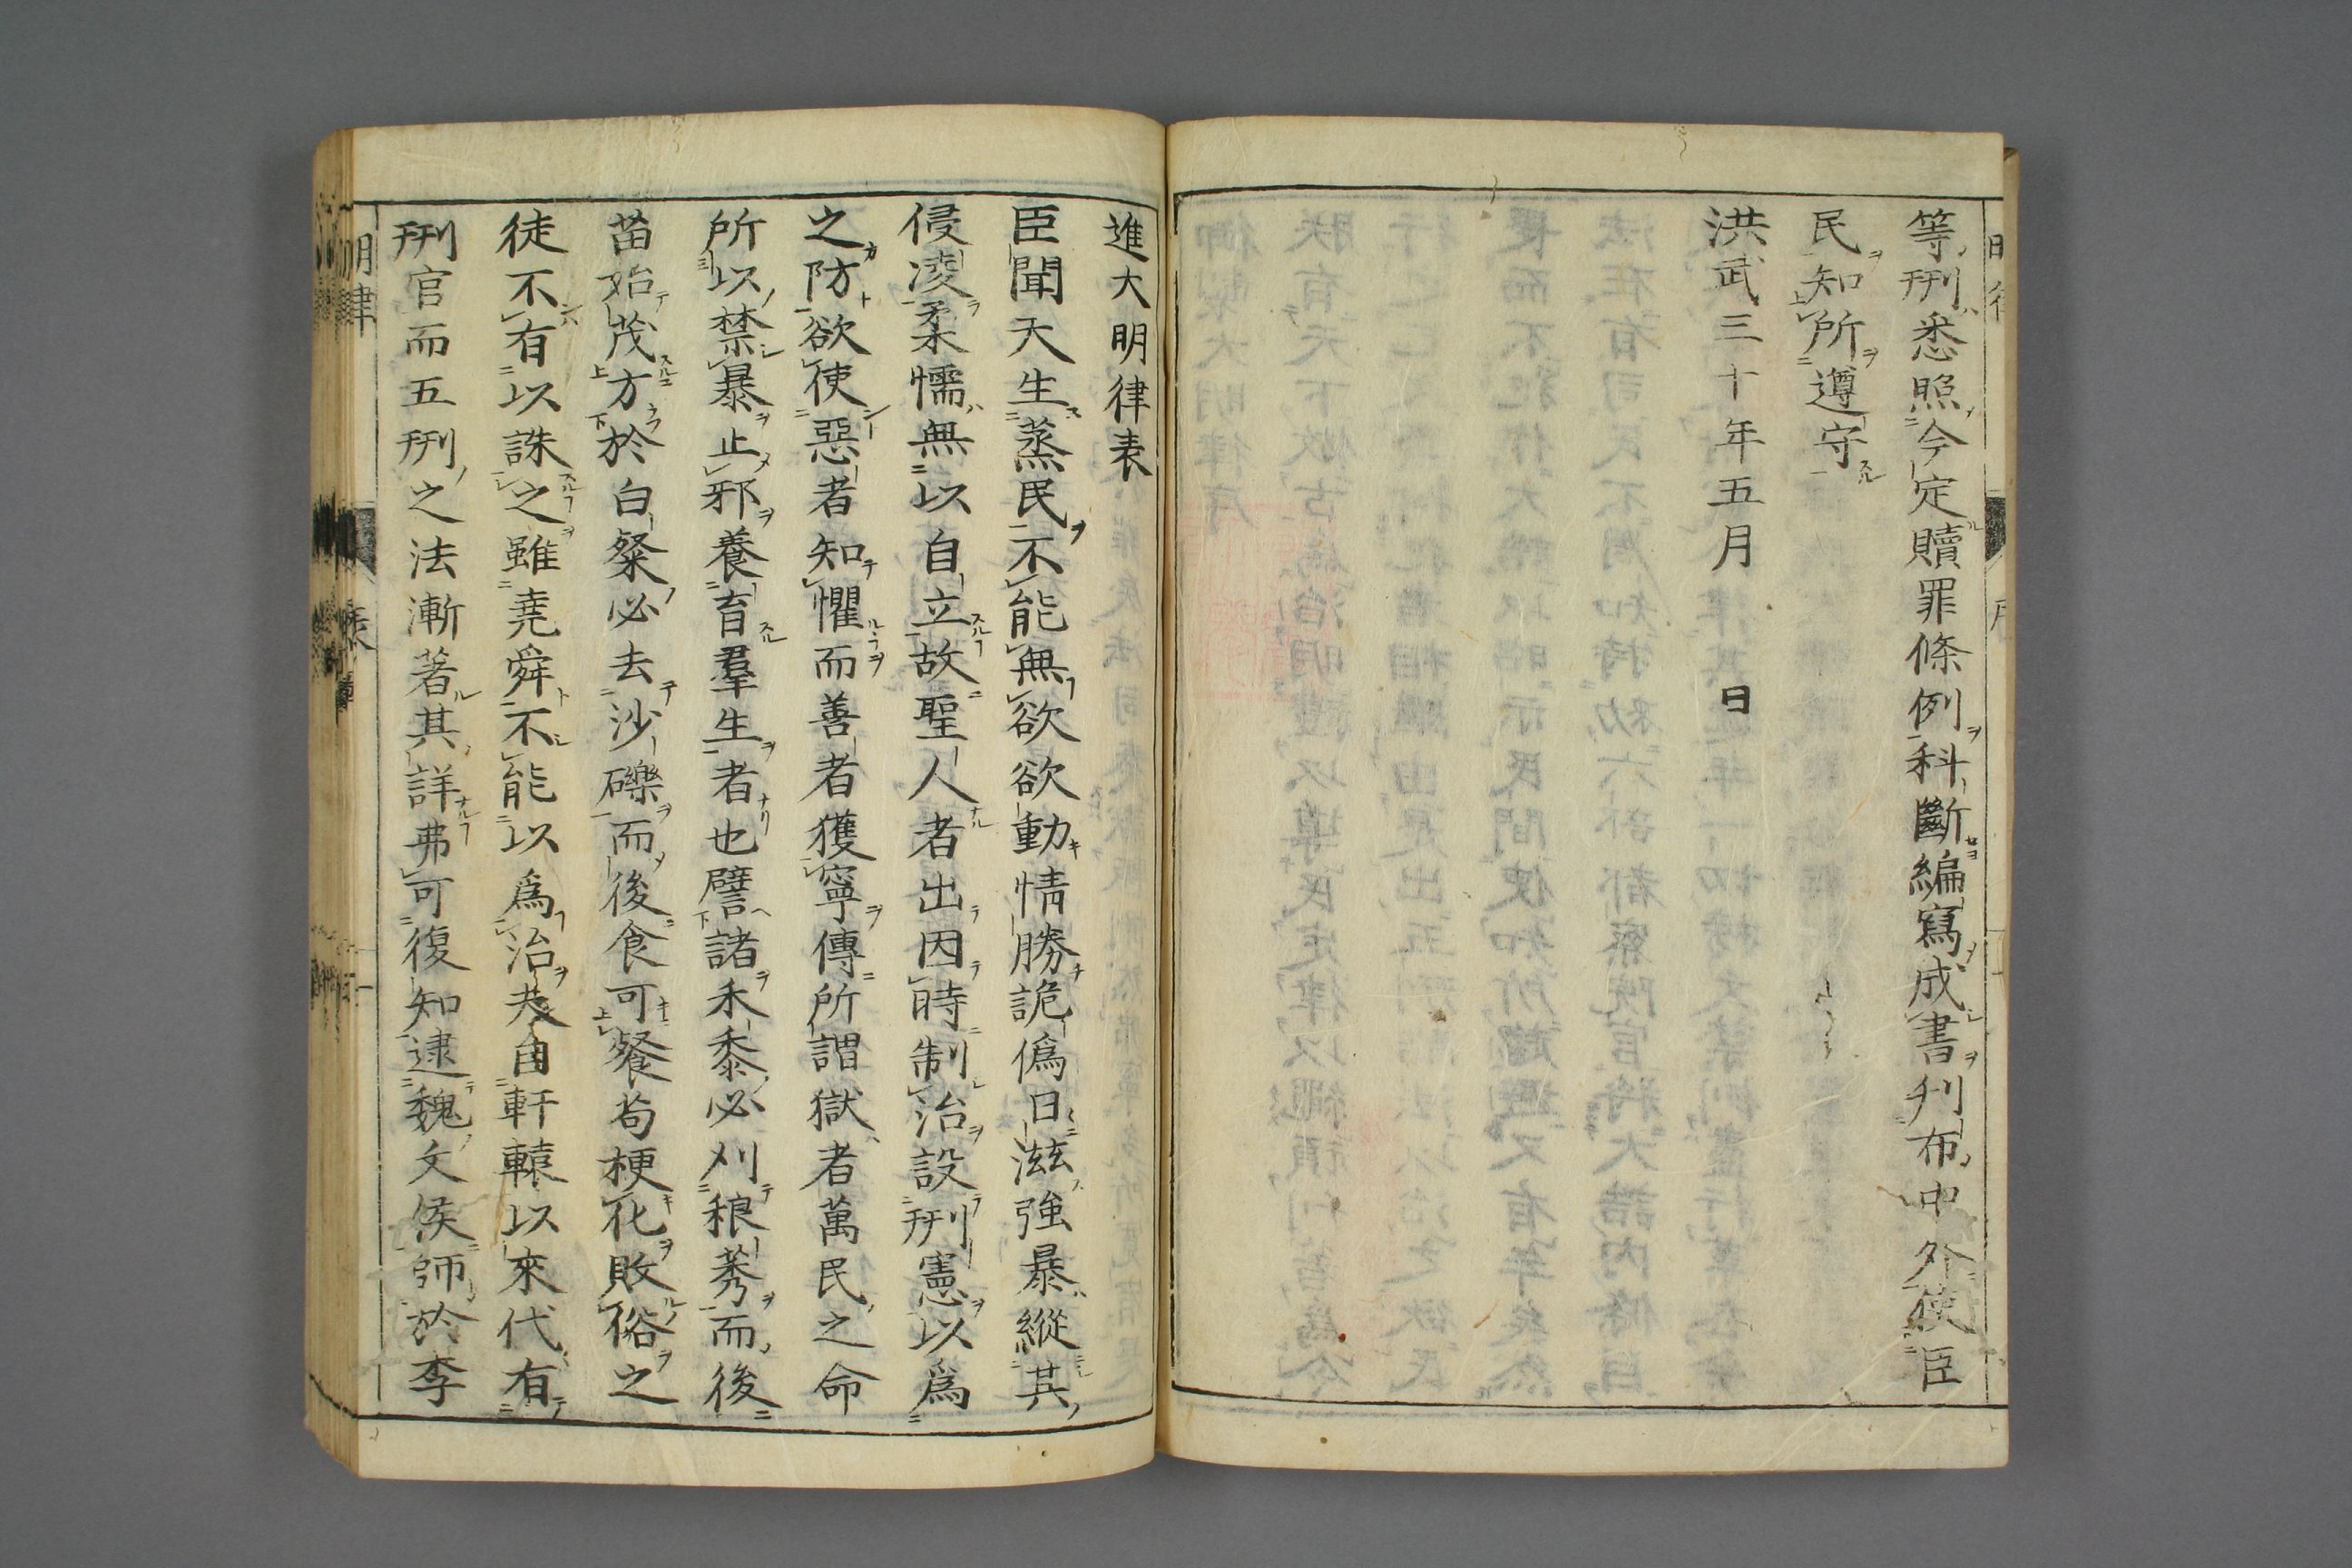 等刑悉照今定贖罪條例科斷編寫成書刋布中外使臣
民知所遵守
洪武三十年五月　日
進大明律表
臣聞天生蒸民不能無欲欲動情勝詭僞日滋強暴縱其
侵凌柔懦無以自立故聖人者出因時制治設刑憲以爲
之防欲使惡者知懼而善者獲寧傳所謂獄者萬民之命
所以禁暴止邪養育羣生者也譬諸禾黍必刈稂莠而後
苗始茂方於白粲必去沙礫而後食可餐苟梗化敗俗之
徒不有以誅之雖堯舜不能以爲治矣自軒轅以來代有
刑官而五刑之法漸著其詳弗可復知逮魏文侯師於李
明律
表